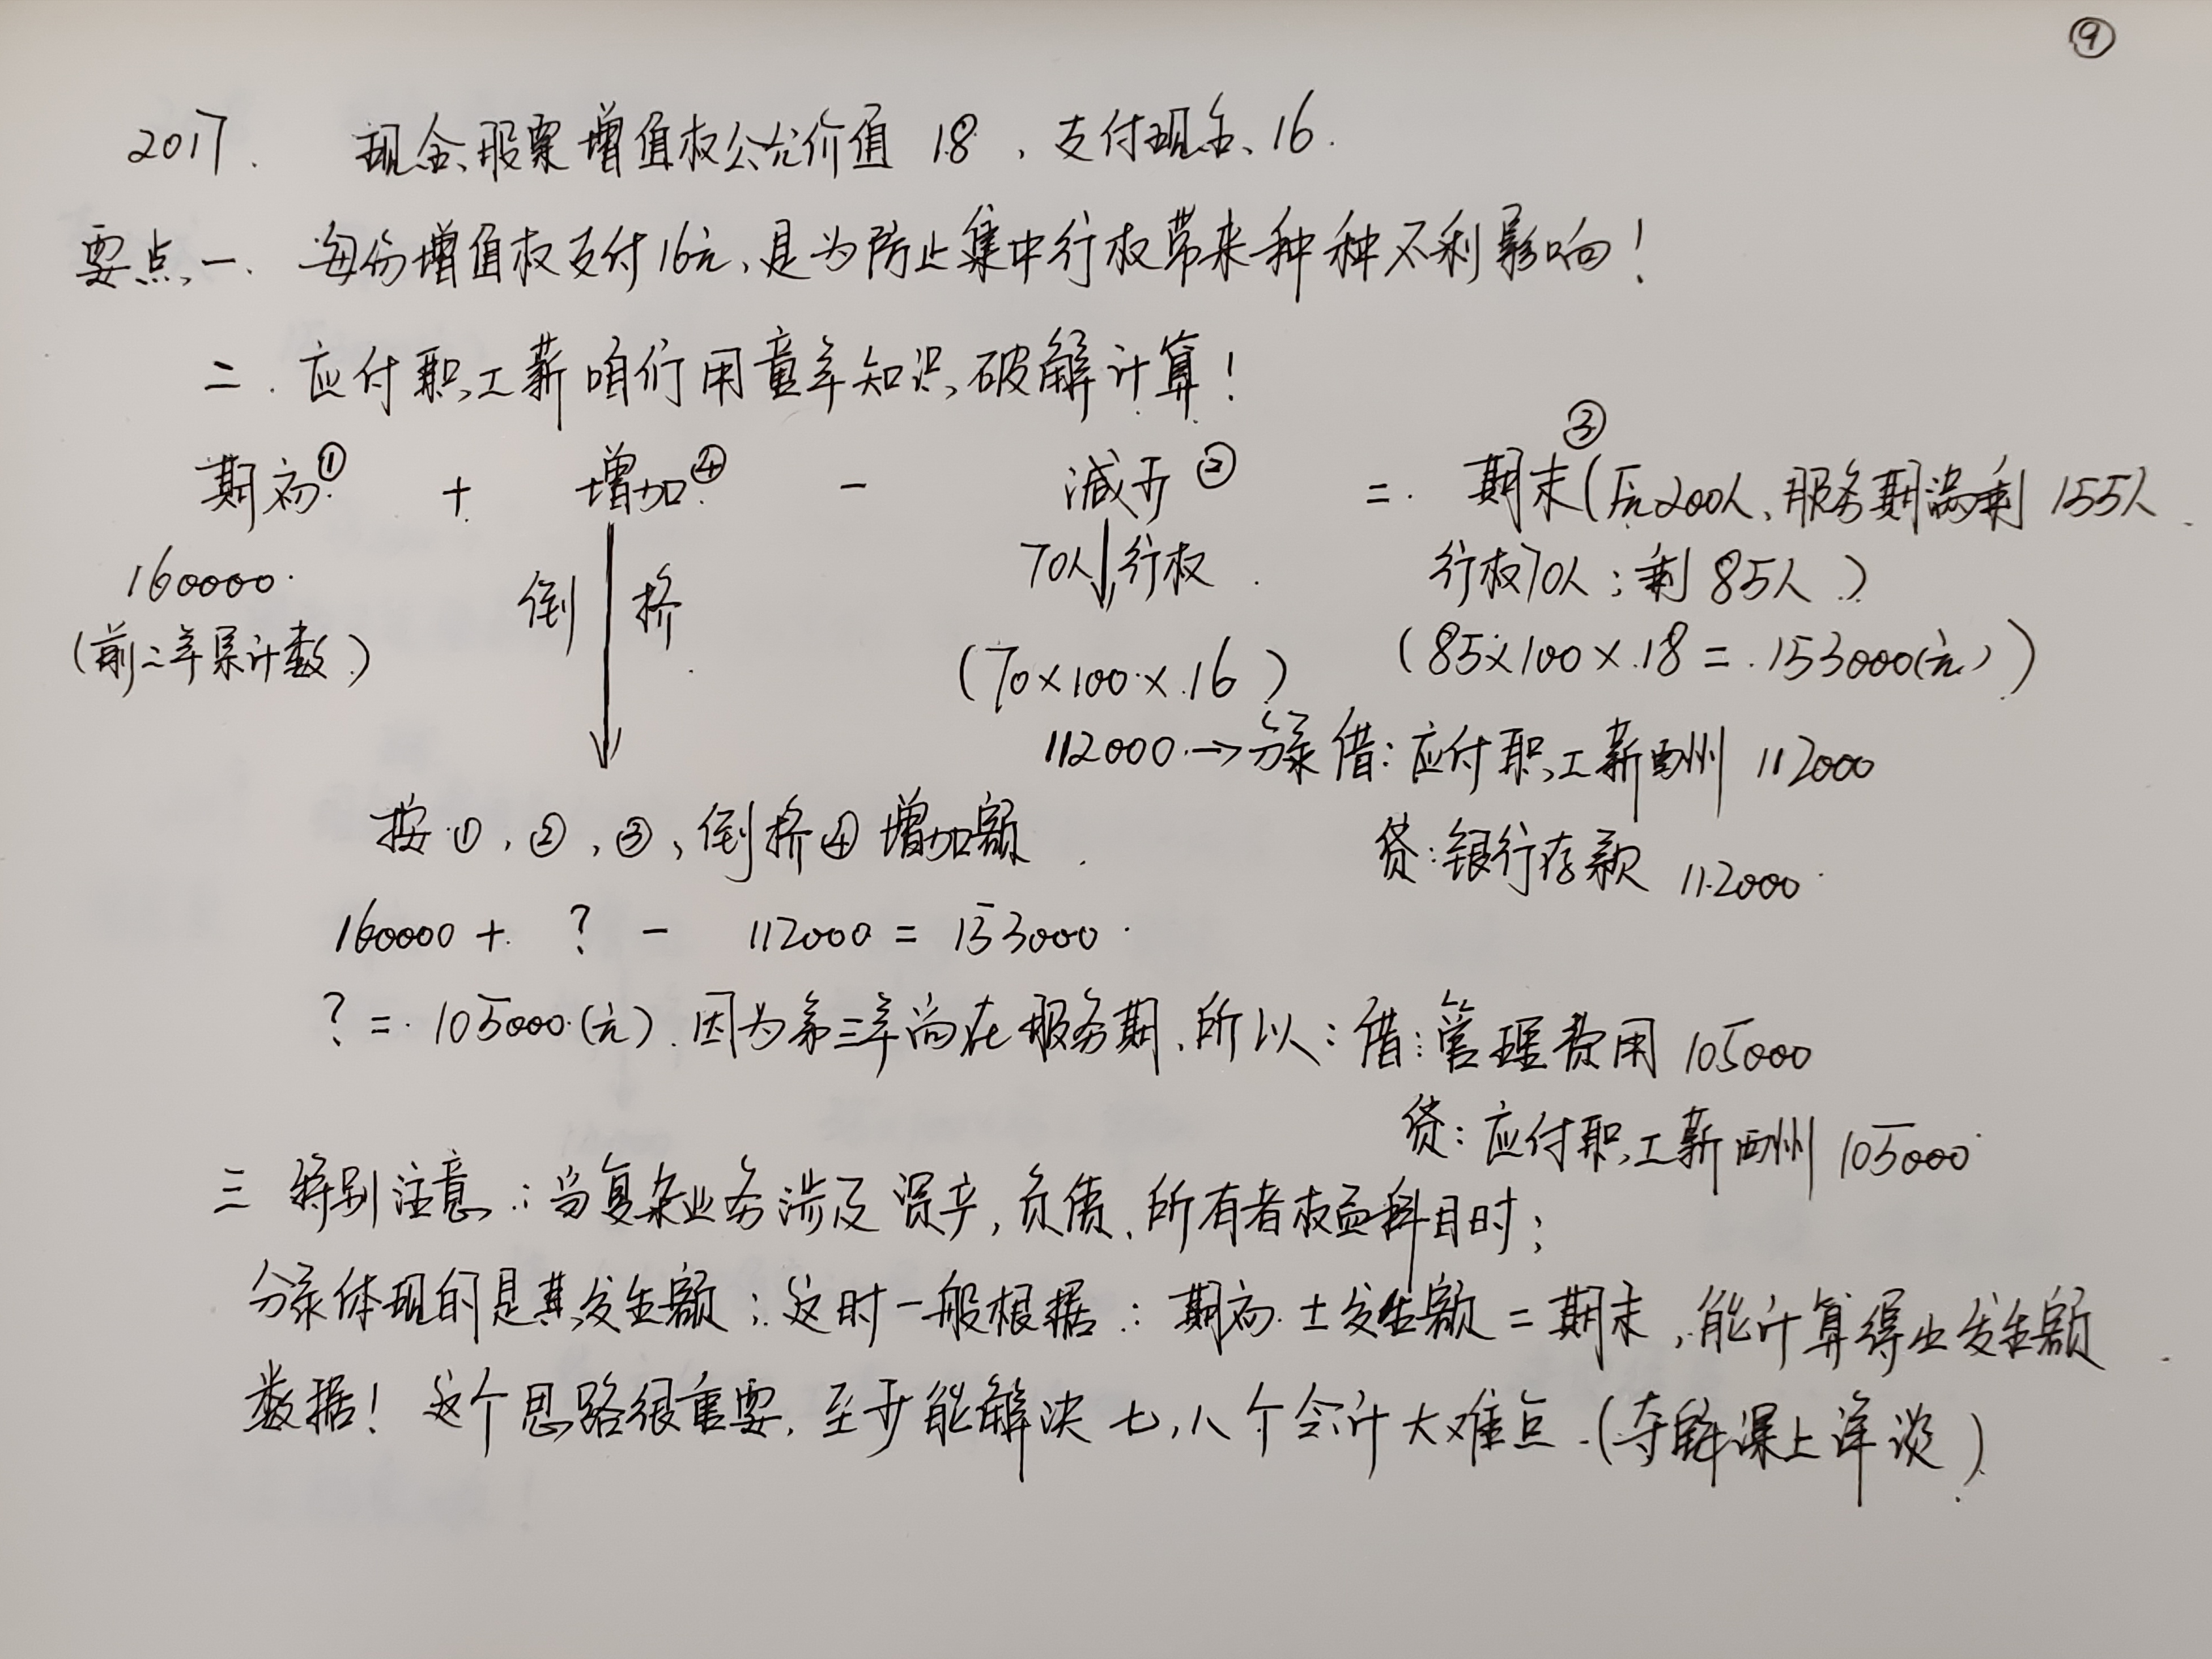 ⑨
2017. 现金股票增值权公允价值 18，支付现金、16.
要点一. 每份增值权支付16元、是为防止集中行权带来种种不利影响！
二. 应付职工薪咱们用童年知识破解计算！
期初① + 增加④ - 减少② = 期末③(原200人、服务期满剩 155人
160000 倒挤 70人行权 行权70人；剩85人)
(前二年累计数) (70×100×16) (85×100×18=153000(元))
112000→分录 借：应付职工薪酬 112000
按①，②，③，倒挤④增加额 贷：银行存款 112000
160000 + ? - 112000 = 153000
? = 105000(元). 因为第三年尚在服务期、所以：借：管理费用 105000
贷：应付职工薪酬 105000
三 特别注意：当复杂业务涉及资产，负债、所有者权益科目时；
分录体现的是其发生额；这时一般根据：期初±发生额=期末，能计算得出发生额
数据！这个思路很重要，至少能解决七，八个会计大难点.(夺题课上详谈)